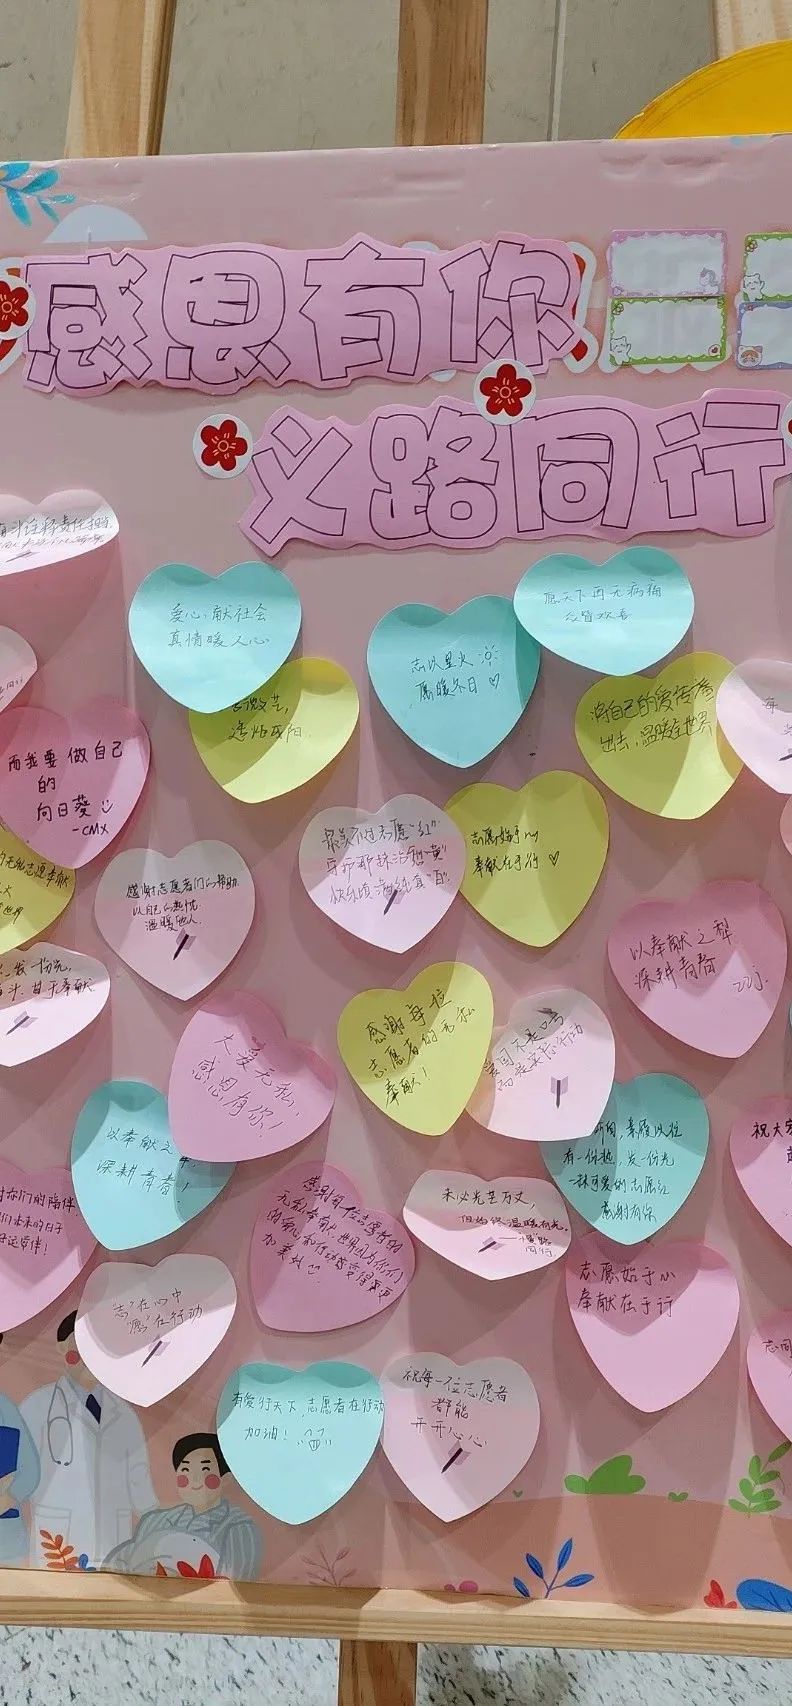 感恩有你
义路同行
爱心献社会
真情暖人心
志以星火
愿暖冬日
愿天下再无病痛
众皆欢喜
将自己的爱传递
出去，温暖全世界
而我要做自己
的
向日葵
-CMX
感谢志愿者们的帮助
以自己的热忱
温暖他人
最美不过志愿“红”
志愿始于心
奉献在于行
以奉献之犁
深耕青春
zzj.
感谢每位
志愿者的无私
奉献！
爱国不是口号
而是实际行动
大爱无私，
感恩有你！
以奉献之
深耕青春！
有一份热，发一份光
感谢有你
未必光芒万丈，
但始终温暖有光。
感谢每一位志愿者的
加美好
志愿始于心
奉献在于行
“志”在心中
“愿”在行动
有爱行天下，志愿者在行动
加油！
祝每一位志愿者
都能
开开心心
发一份光，
甘于奉献
祝大家